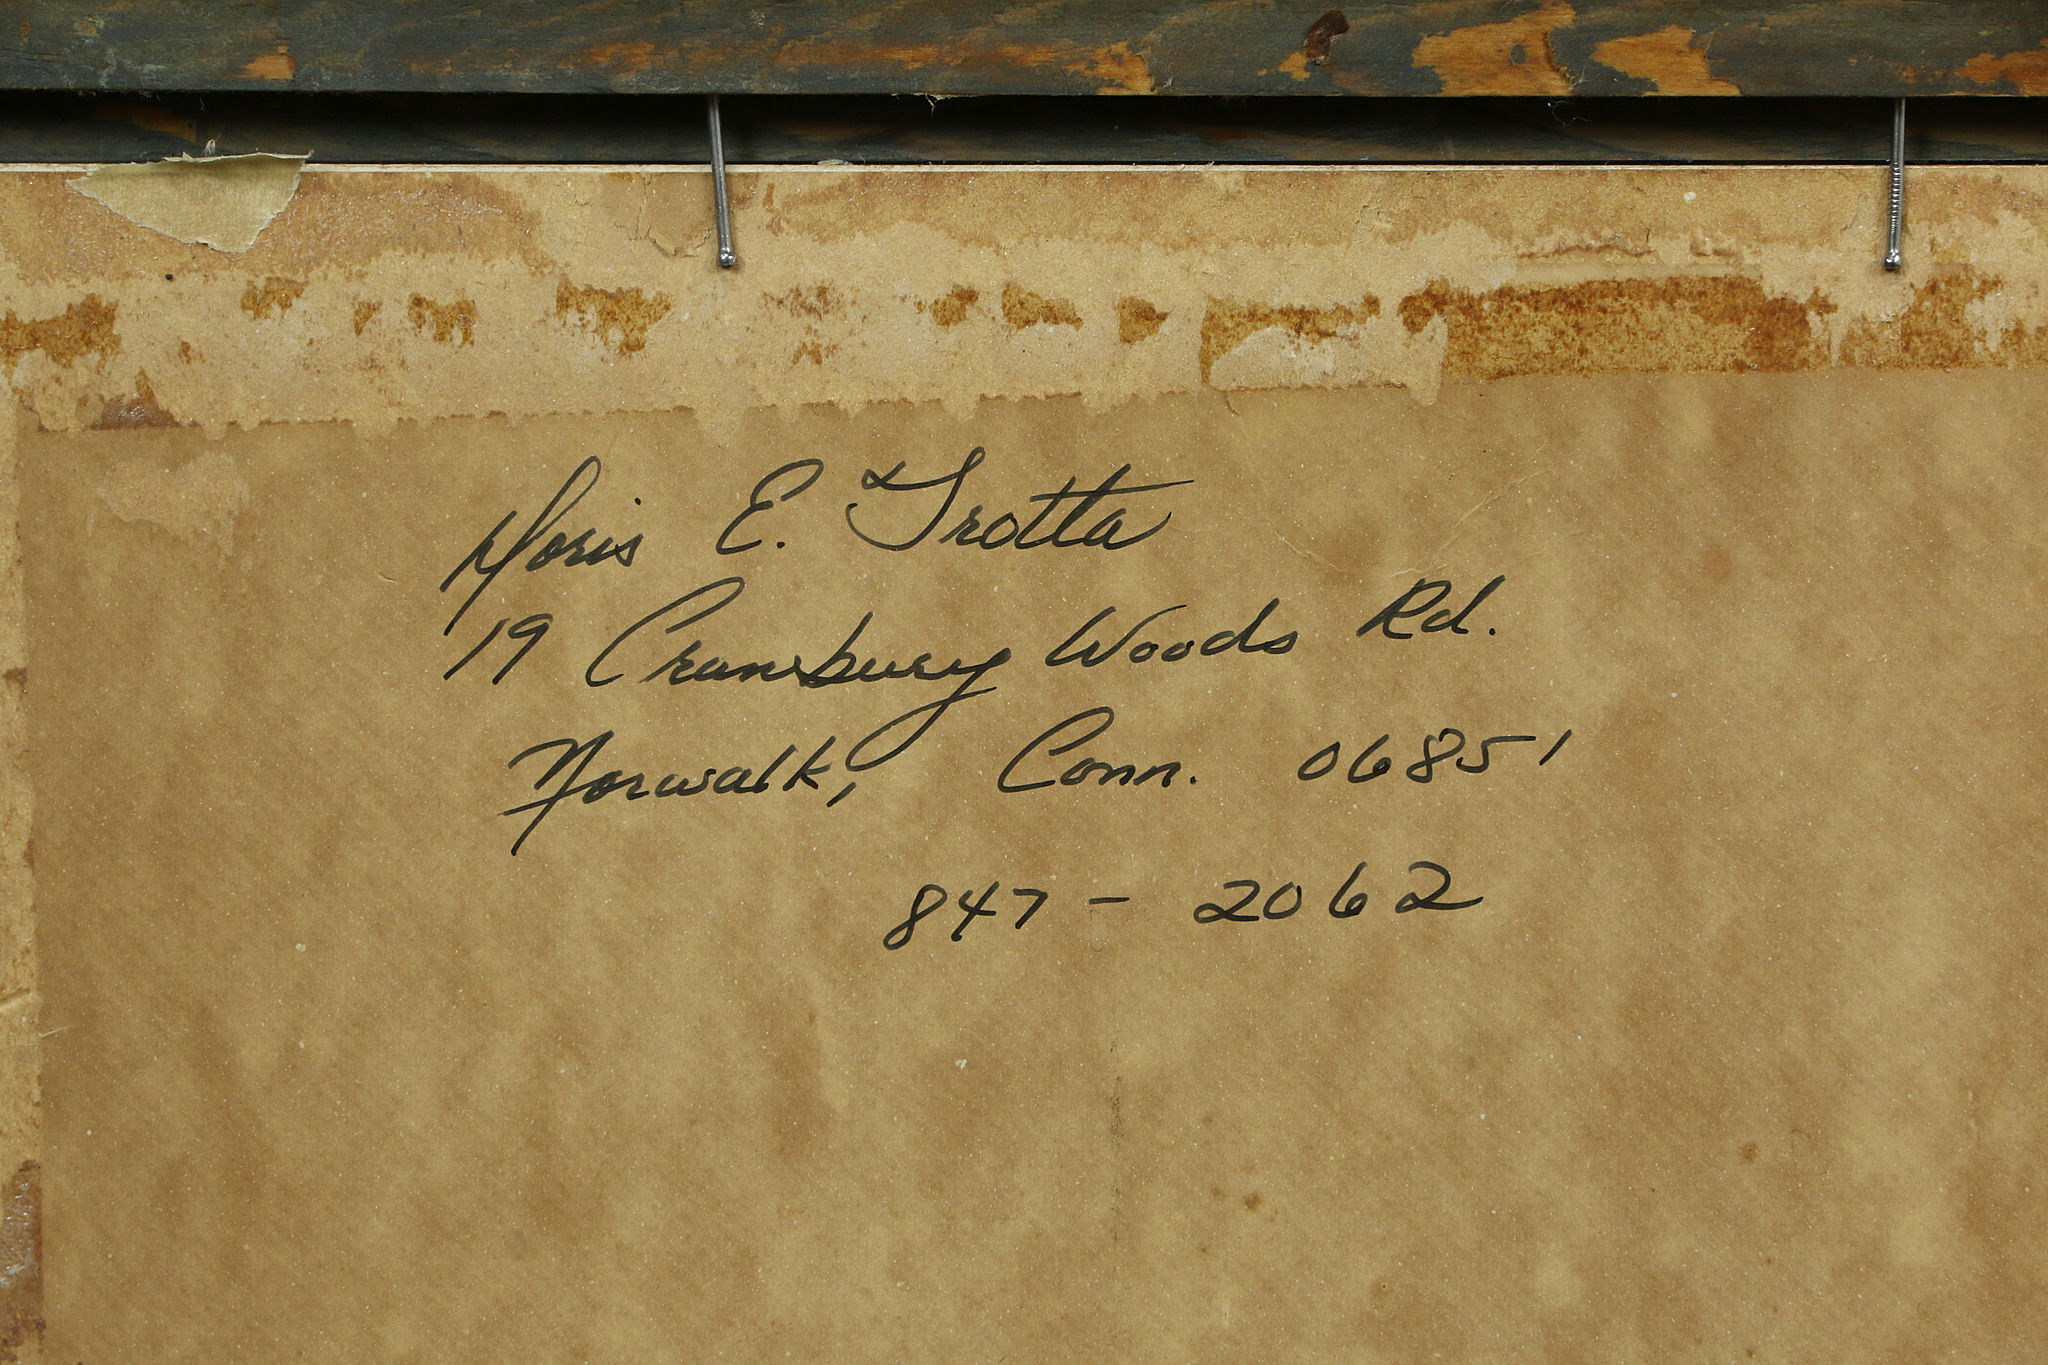 Doris E. Trotta
19 Cranbury Woods Rd.
Norwalk, Conn. 06851
847-2062